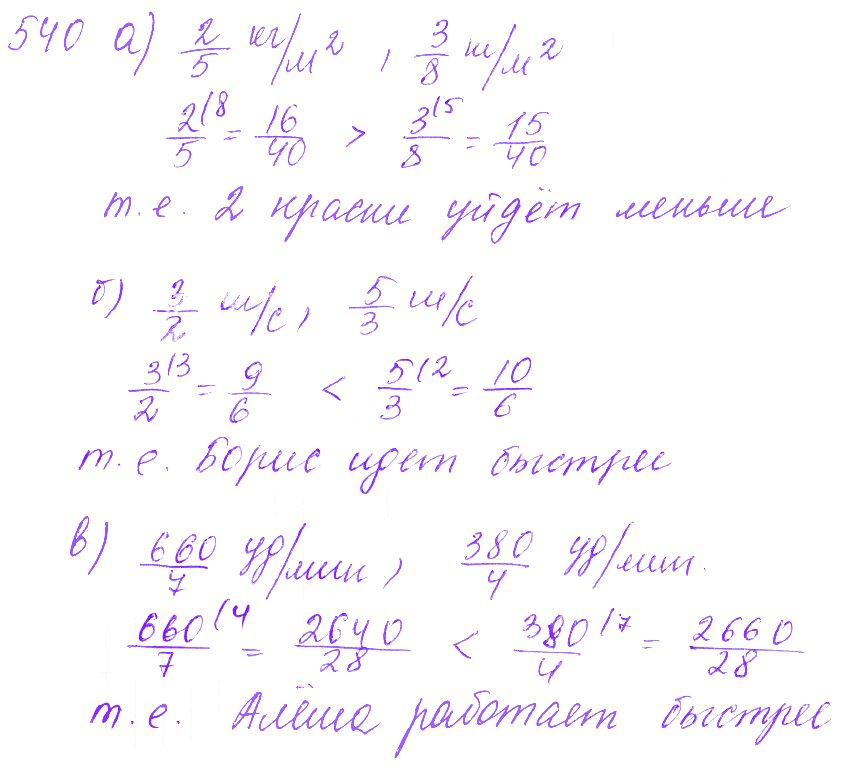 540 а) 2/5 кг/м², 3/8 ш/м²
2/5 (8 = 16/40 > 3/8 (5 = 15/40
т.е. 2 краски уйдёт меньше
б) 3/2 ш/с, 5/3 ш/с
3/2 (3 = 9/6 < 5/3 (2 = 10/6
т.е. Борис идет быстрее
в) 660/7 уд/мин, 380/4 уд/мин.
660/7 (4 = 2640/28 < 380/4 (7 = 2660/28
т.е. Алёша работает быстрее